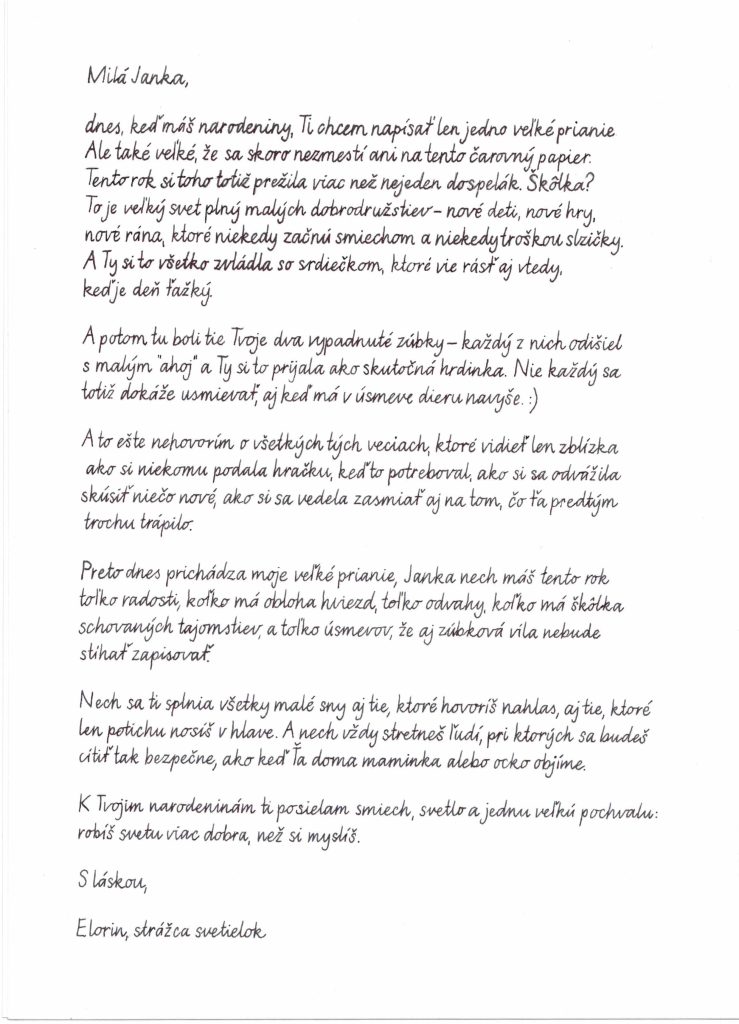 Milá Janka,
dnes, keď máš narodeniny, Ti chcem napísať len jedno veľké prianie
Ale také veľké, že sa skoro nezmestí ani na tento čarovný papier.
Tento rok si toho totiž prežila viac než nejeden dospelák. Škôlka?
To je veľký svet plný malých dobrodružstiev – nové deti, nové hry,
nové rána, ktoré niekedy začnú smiechom a niekedy troškou slzičky.
A Ty si to všetko zvládla so srdiečkom, ktoré vie rásť aj vtedy,
keď je deň ťažký.
A potom tu boli tie Tvoje dva vypadnuté zúbky – každý z nich odišiel
s malým "ahoj" a Ty si to prijala ako skutočná hrdinka. Nie každý sa
totiž dokáže usmievať, aj keď má v úsmeve dieru navyše. :)
A to ešte nehovorím o všetkých tých veciach, ktoré vidieť len zblízka
ako si niekomu podala hračku, keď to potreboval, ako si sa odvážila
skúsiť niečo nové, ako si sa vedela zasmiať aj na tom, čo ťa predtým
trochu trápilo.
Preto dnes prichádza moje veľké prianie, Janka nech máš tento rok
toľko radosti, koľko má obloha hviezd, toľko odvahy, koľko má škôlka
schovaných tajomstiev, a toľko úsmevov, že aj zúbková víla nebude
stíhať zapisovať.
Nech sa ti splnia všetky malé sny aj tie, ktoré hovoríš nahlas, aj tie, ktoré
len potichu nosíš v hlave. A nech vždy stretneš ľudí, pri ktorých sa budeš
cítiť tak bezpečne, ako keď Ťa doma maminka alebo ocko objíme.
K Tvojim narodeninám ti posielam smiech, svetlo a jednu veľkú pochvalu:
robíš svetu viac dobra, než si myslíš.
S láskou,
Elorin, strážca svetielok